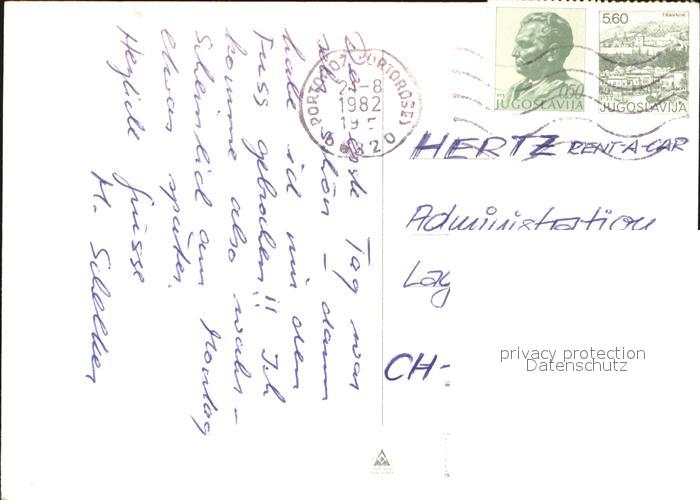 Der erste Tag war
sehr schön – dann
habe ich mir den
Fuss gebrochen!! Ich
komme also wahr-
scheinlich am Montag
etwas später.
Herzliche Grüsse
M.
PORTOROŽ PORTOROSE
21-8
1982
6320
0.50
JUGOSLAVIJA
TRAVNIK
5.60
JUGOSLAVIJA
HERTZ RENT-A-CAR
Administration
Lag
CH-
privacy protection
Datenschutz